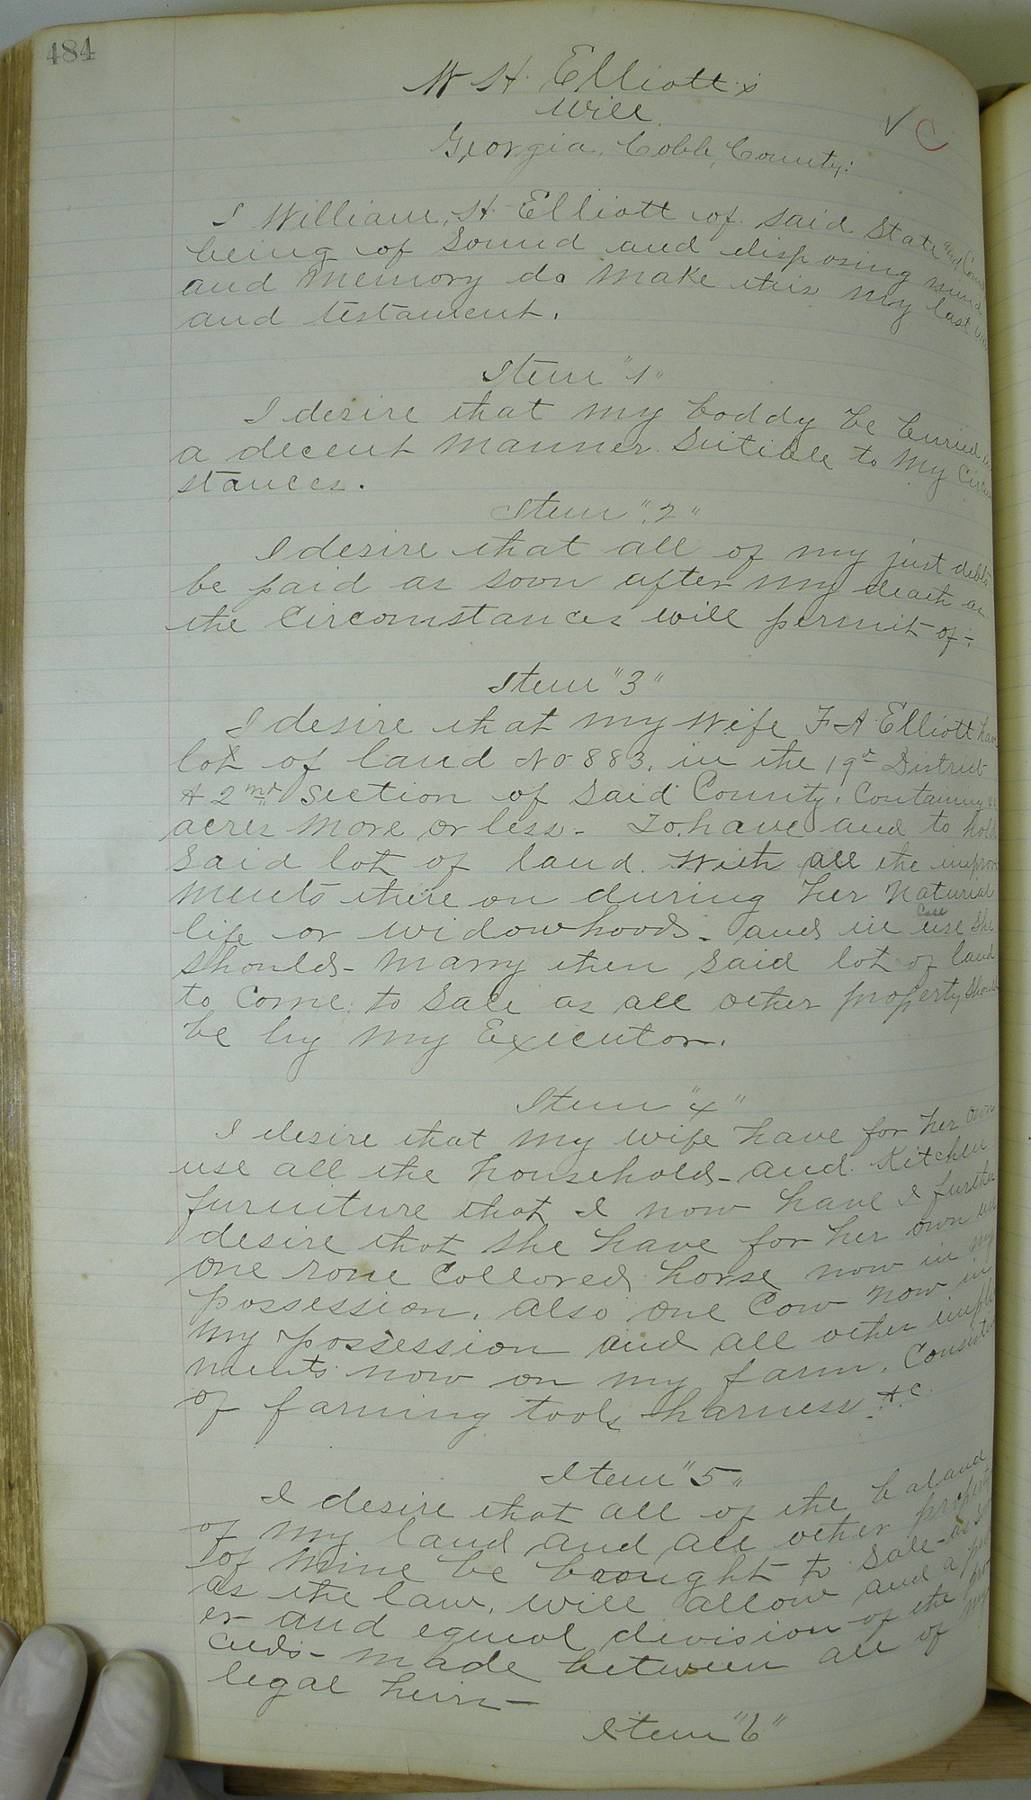 484
W H Elliott's
Will
✓ C
Georgia, Cobb, County:
I William, H. Elliott of said State and
being of Sound and disposing mind
and memory do make this my last
and testament.
Item "1"
I desire that my boddy be buried in
a decent manner Sutible to my Circum
stances.
Item "2"
I desire that all of my just debts
be paid as soon after my death as
the Circomstances will permit of-.
Item "3"
I desire that my wife F A Elliott have
lot of land No 883, in the 19th District
& 2nd Section of said County, Containing
acres more or less- To have and to hold
Said lot of land with all the improv
ments there on during her Naturial
life or widowhood- and in Case she
should- marry then said lot of land
to Come to Sale as all other property should
be by my Executor.
Item "4"
I desire that my wife have for her own
use all the household- and Kitchen
furniture that I now have I further
desire that she have for her own use
one rone Collored horse now in my
possession, also one Cow now in
my possession and all other imple
ments now on my farm, Consisting
of farming tools harness &c.
Item "5"
I desire that all of the baland
of my land and all other property
of mine be brought to Sale as
as the law, will allow and a
er and equeol division of the pro
ceeds- made between all of my
legal heirs-
Item "6"